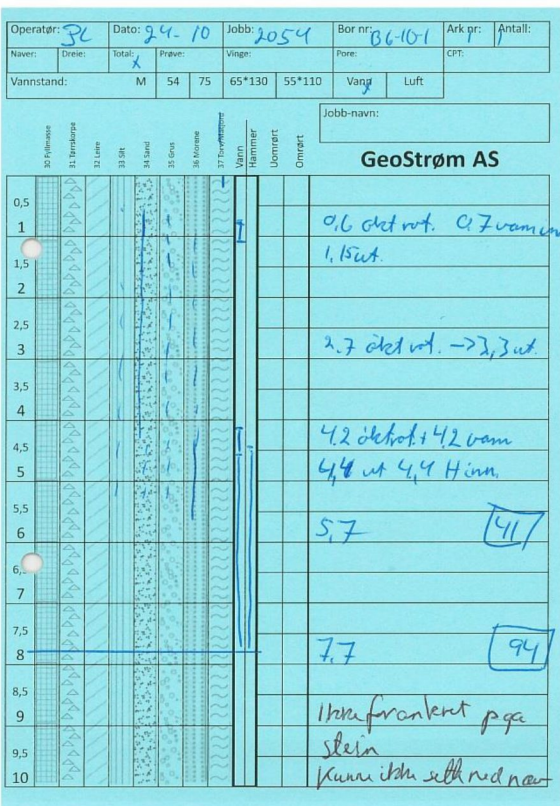 Operatør: PL Dato: 24-10 Jobb: 2054 Bor nr: B6-10-1 Ark nr: 1 Antall: 1
Naver: Dreie: Total: x Prøve: Vinge: Pore: CPT:
Vannstand: M 54 75 65*130 55*110 Vann x Luft
Jobb-navn:
30 Fyllmasse 31 Tørrskorpe 32 Leire 33 Silt 34 Sand 35 Grus 36 Morene 37 Torv/Matjord Vann Hammer Uomrørt Omrørt
GeoStrøm AS
0,5
1 0,6 økt rot. 0,7 vann inn
1,5 1,15 ut.
2
2,5
3 2.7 økt rot. -> 3,3 ut.
3,5
4
4,5 4.2 økt rot. + 4.2 vann
5 4,4 ut 4,4 H inn.
5,5
6 5,7 41
6,
7
7,5
8 7.7 94
8,5
9 Ikke forankret pga
9,5 stein
10 Kunne ikke sette ned